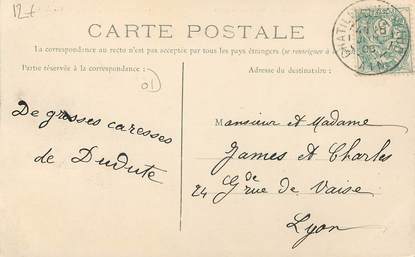 12f
CARTE POSTALE
La correspondance au recto n'est pas acceptée par tous les pays étrangers (se renseigner à
Partie réservée à la correspondance :
Adresse du destinataire :
01
De grosses caresses
de Dudute
Monsieur et Madame
James et Charles
24 Gde rue de Vaise
Lyon